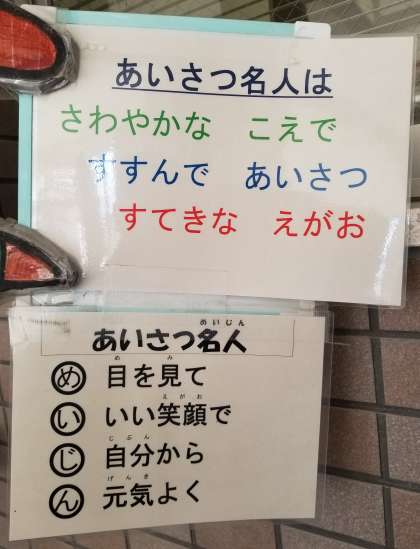 あいさつ名人は
さわやかな　こえで
すすんで　あいさつ
すてきな　えがお
めいじん
あいさつ名人
め　み
め 目を見て
えがお
い いい笑顔で
じぶん
じ 自分から
げんき
ん 元気よく